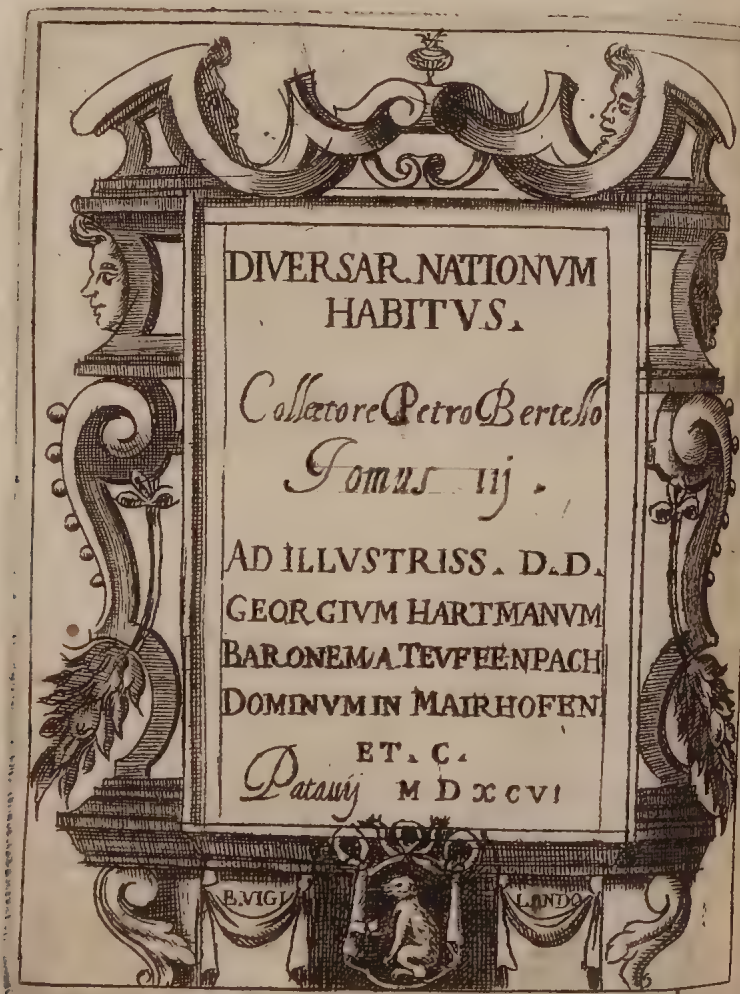 DIVERSAR. NATIONVM
HABITVS.
Collectore Petro Bertello
Tomus iij.
AD ILLVSTRISS. D.D.
GEORGIVM HARTMANVM
BARONEM A TEVFEENPACH
DOMINVM IN MAIRHOFEN
ET. C.
Patauij M D XCVI
B.VIGI LANDO